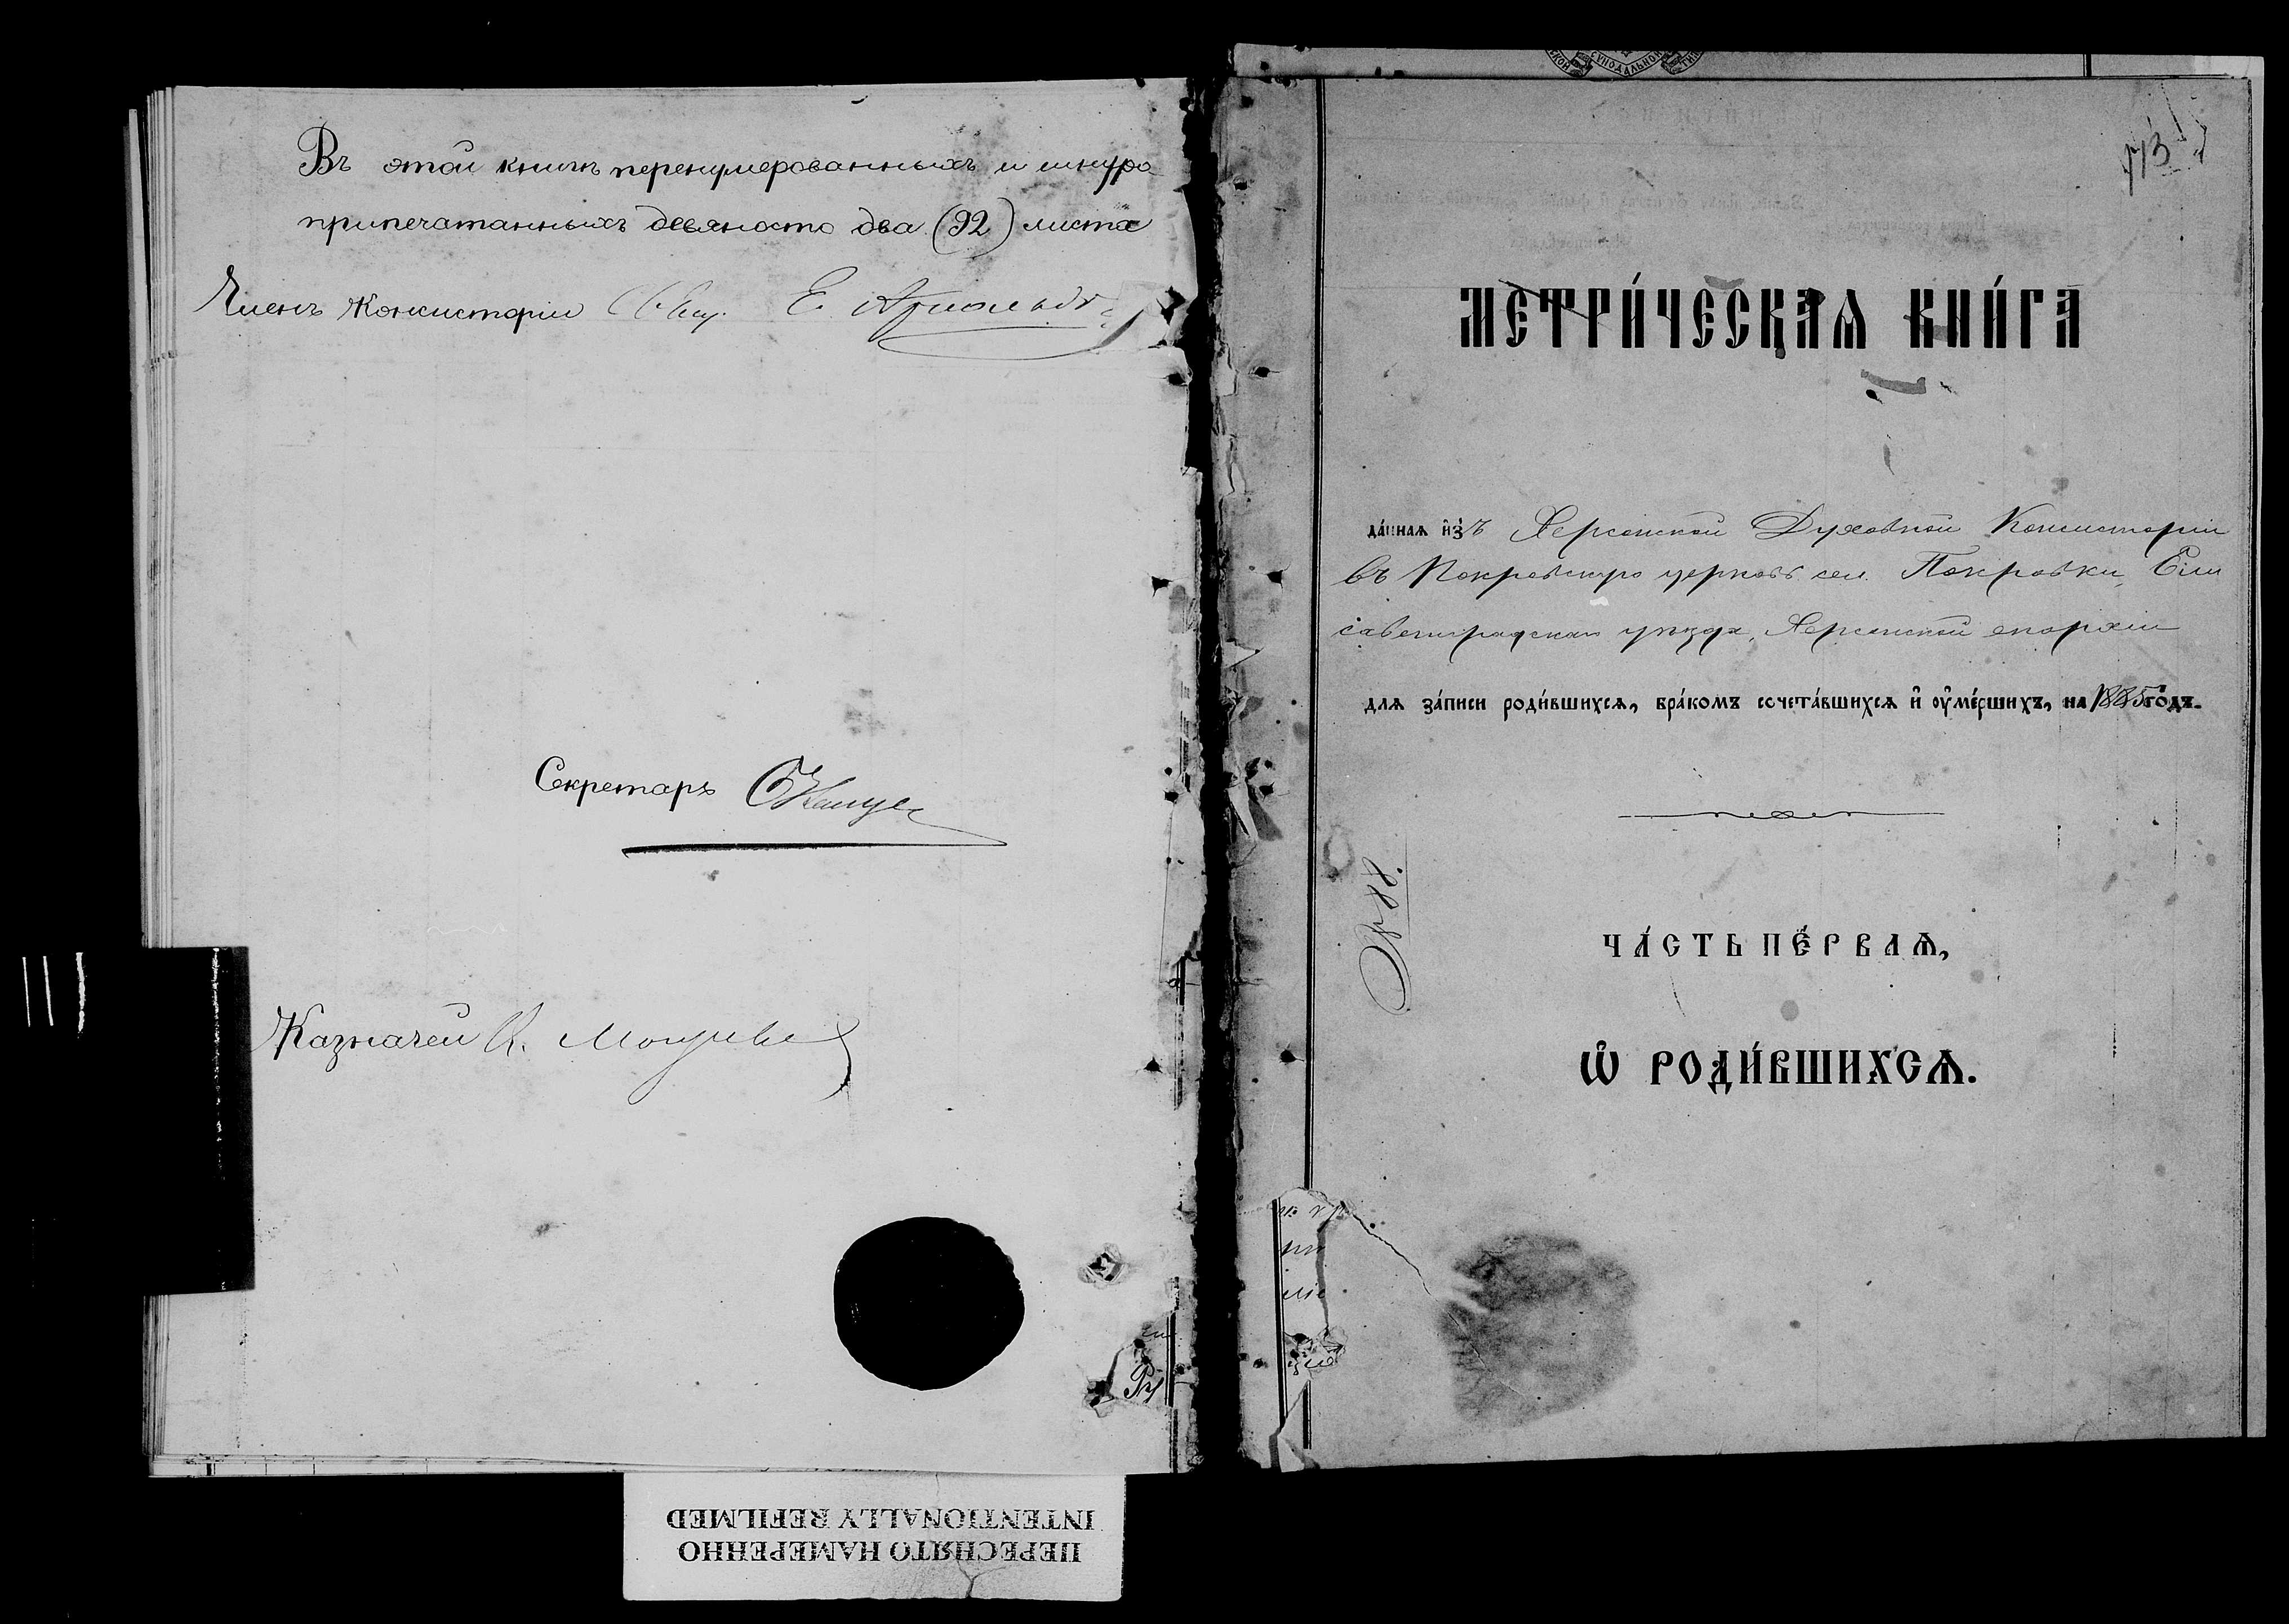 Въ этой книгѣ перенумерованныхъ и шнуро
припечатанныхъ девяносто два (92) листа
Членъ Консисторіи Свящ. Е. Арнольдъ
Секретарь
Казначей К.
МЕТРИ́ЧЕСКАѦ КНИ́ГА
да́ннаѧ и҆зъ Херсонской Духовной Консисторіи
въ Покровскую церковь сел. Покровки, Ели
саветградскаго уѣзда, Херсонской епархіи
длѧ за́писи роди́вшихсѧ, бра́комъ сочета́вшихсѧ и҆ ᲂу҆ме́ршихъ, на 1885 го́дъ.
№ 88.
ЧА́СТЬ ПЕ́РВАѦ,
Ѡ҆ РОДИ́ВШИХСѦ.
Ру
ПЕРЕСНЯТО НАМЕРЕННО
INTENTIONALLY REFILMED